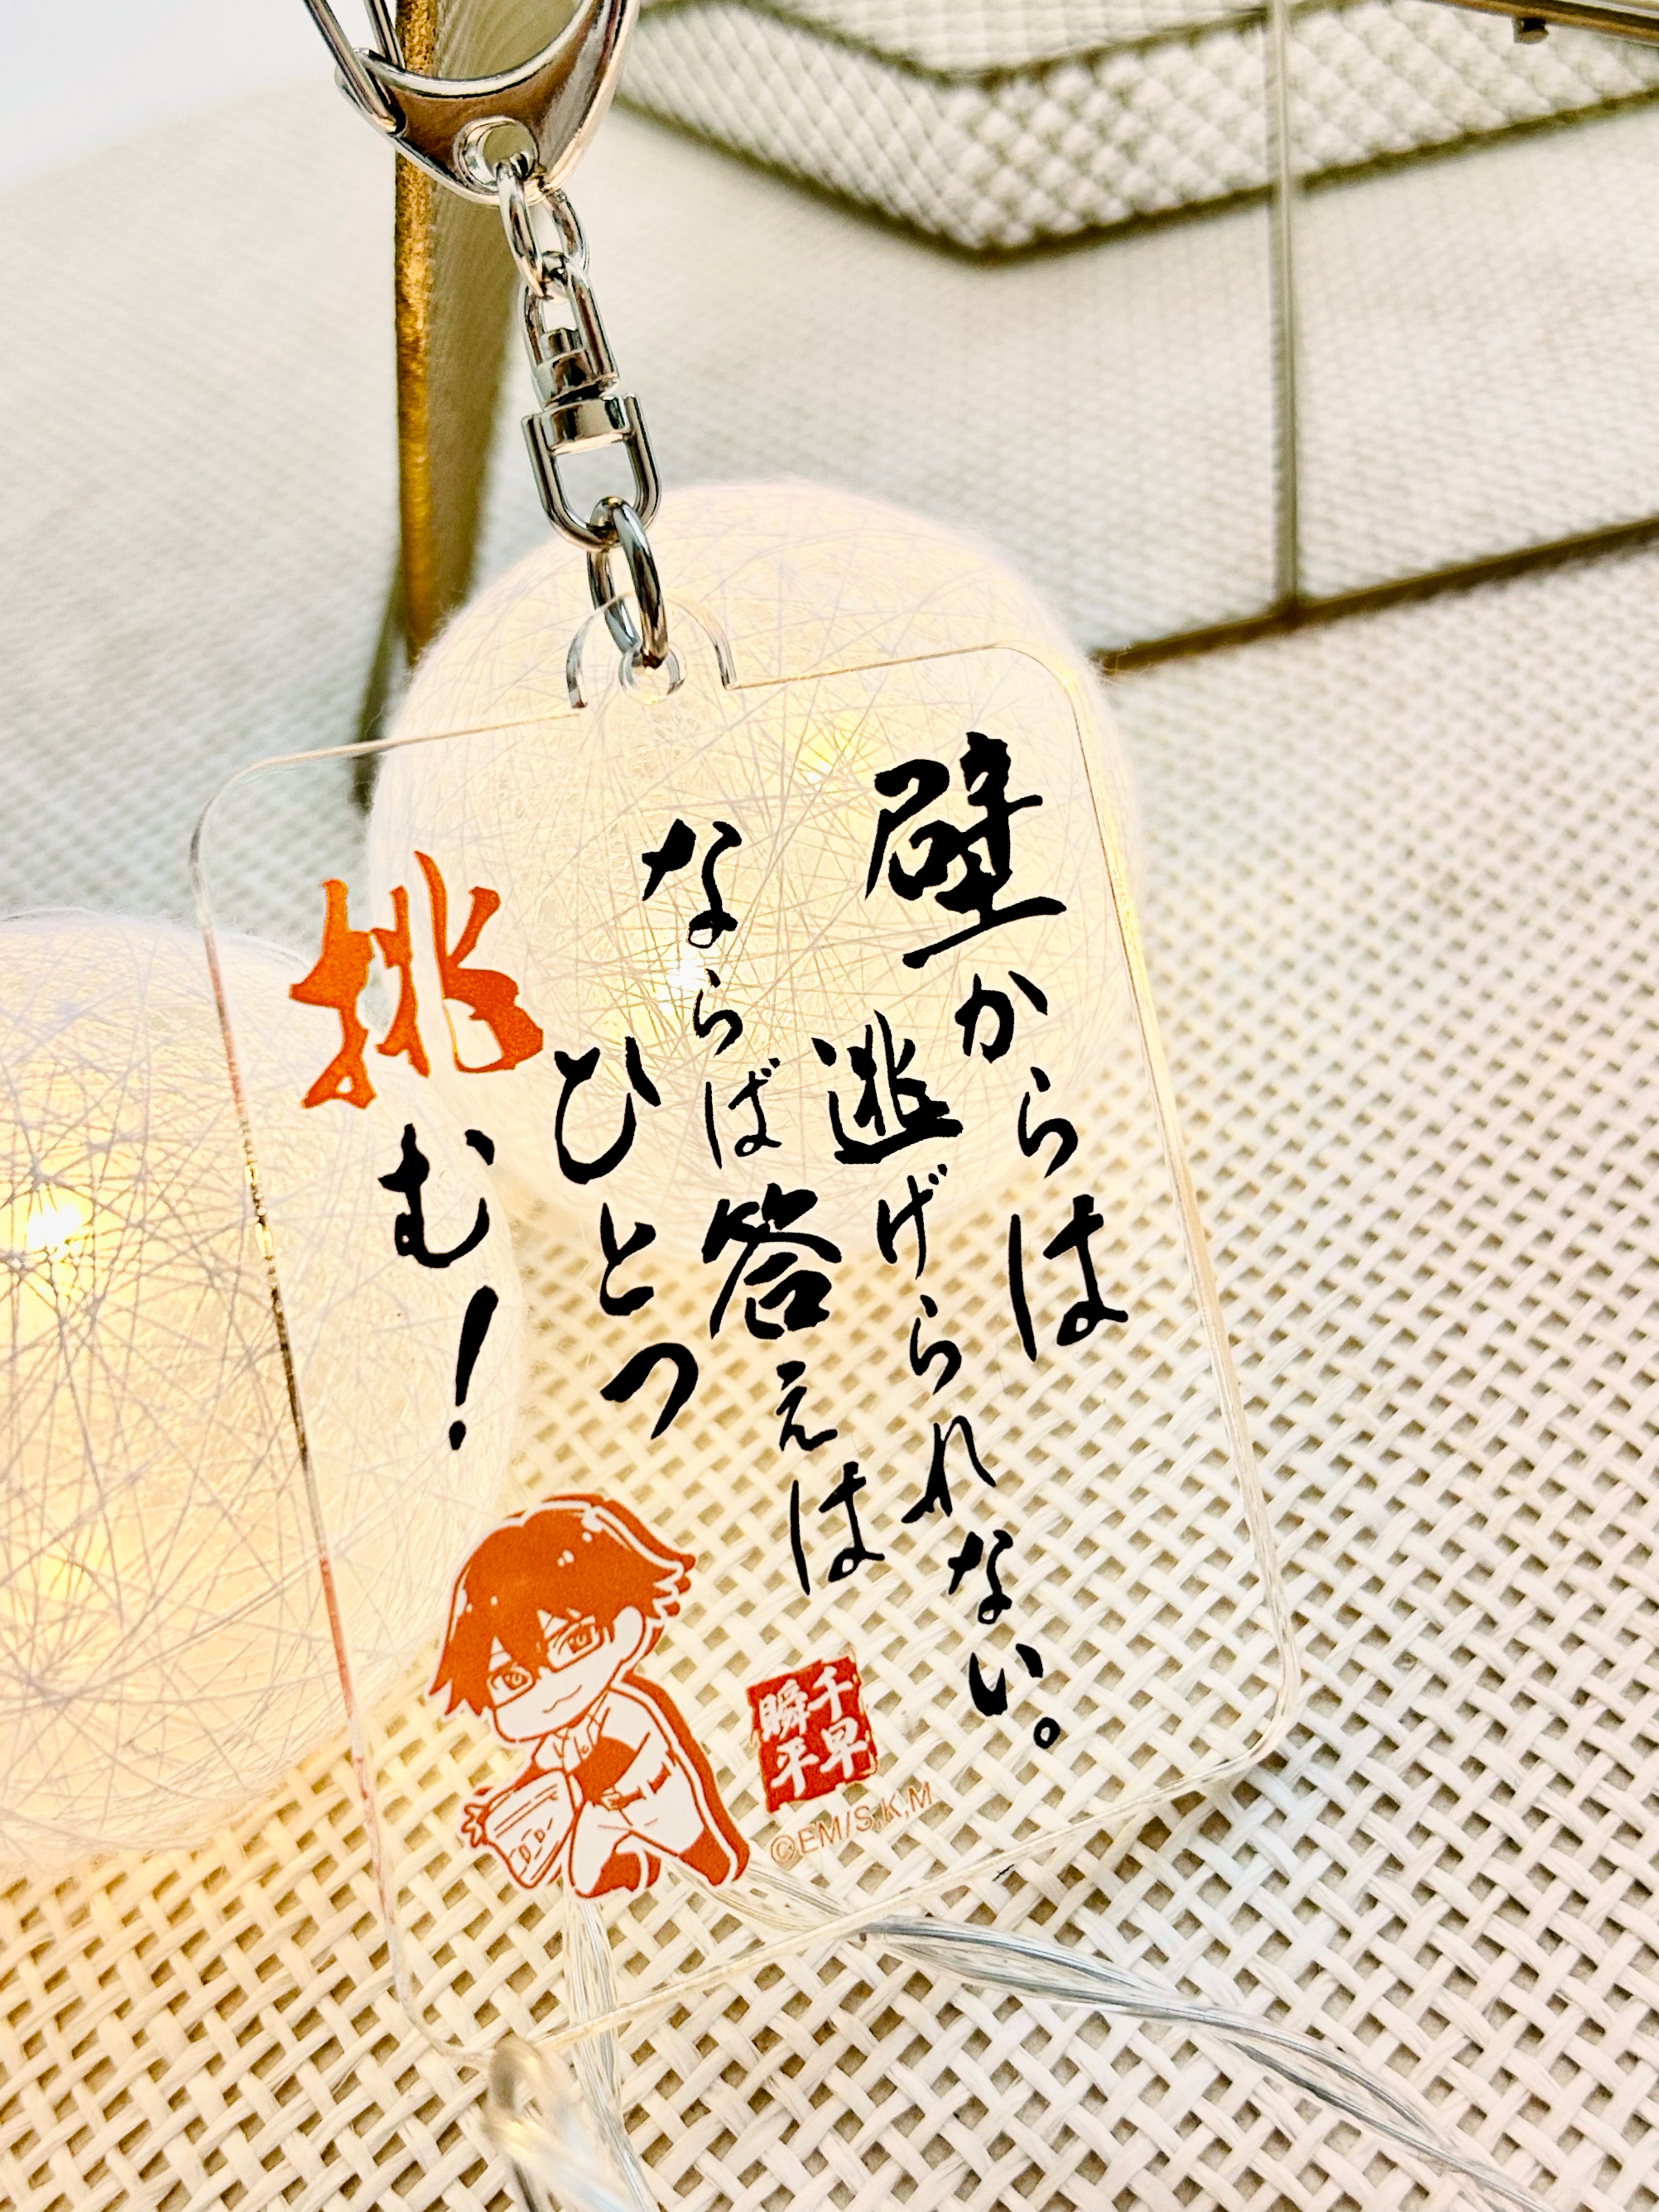 壁からは
逃げられない。
ならば答えは
ひとつ
挑む!
千早
瞬平
©EM/S,K,M